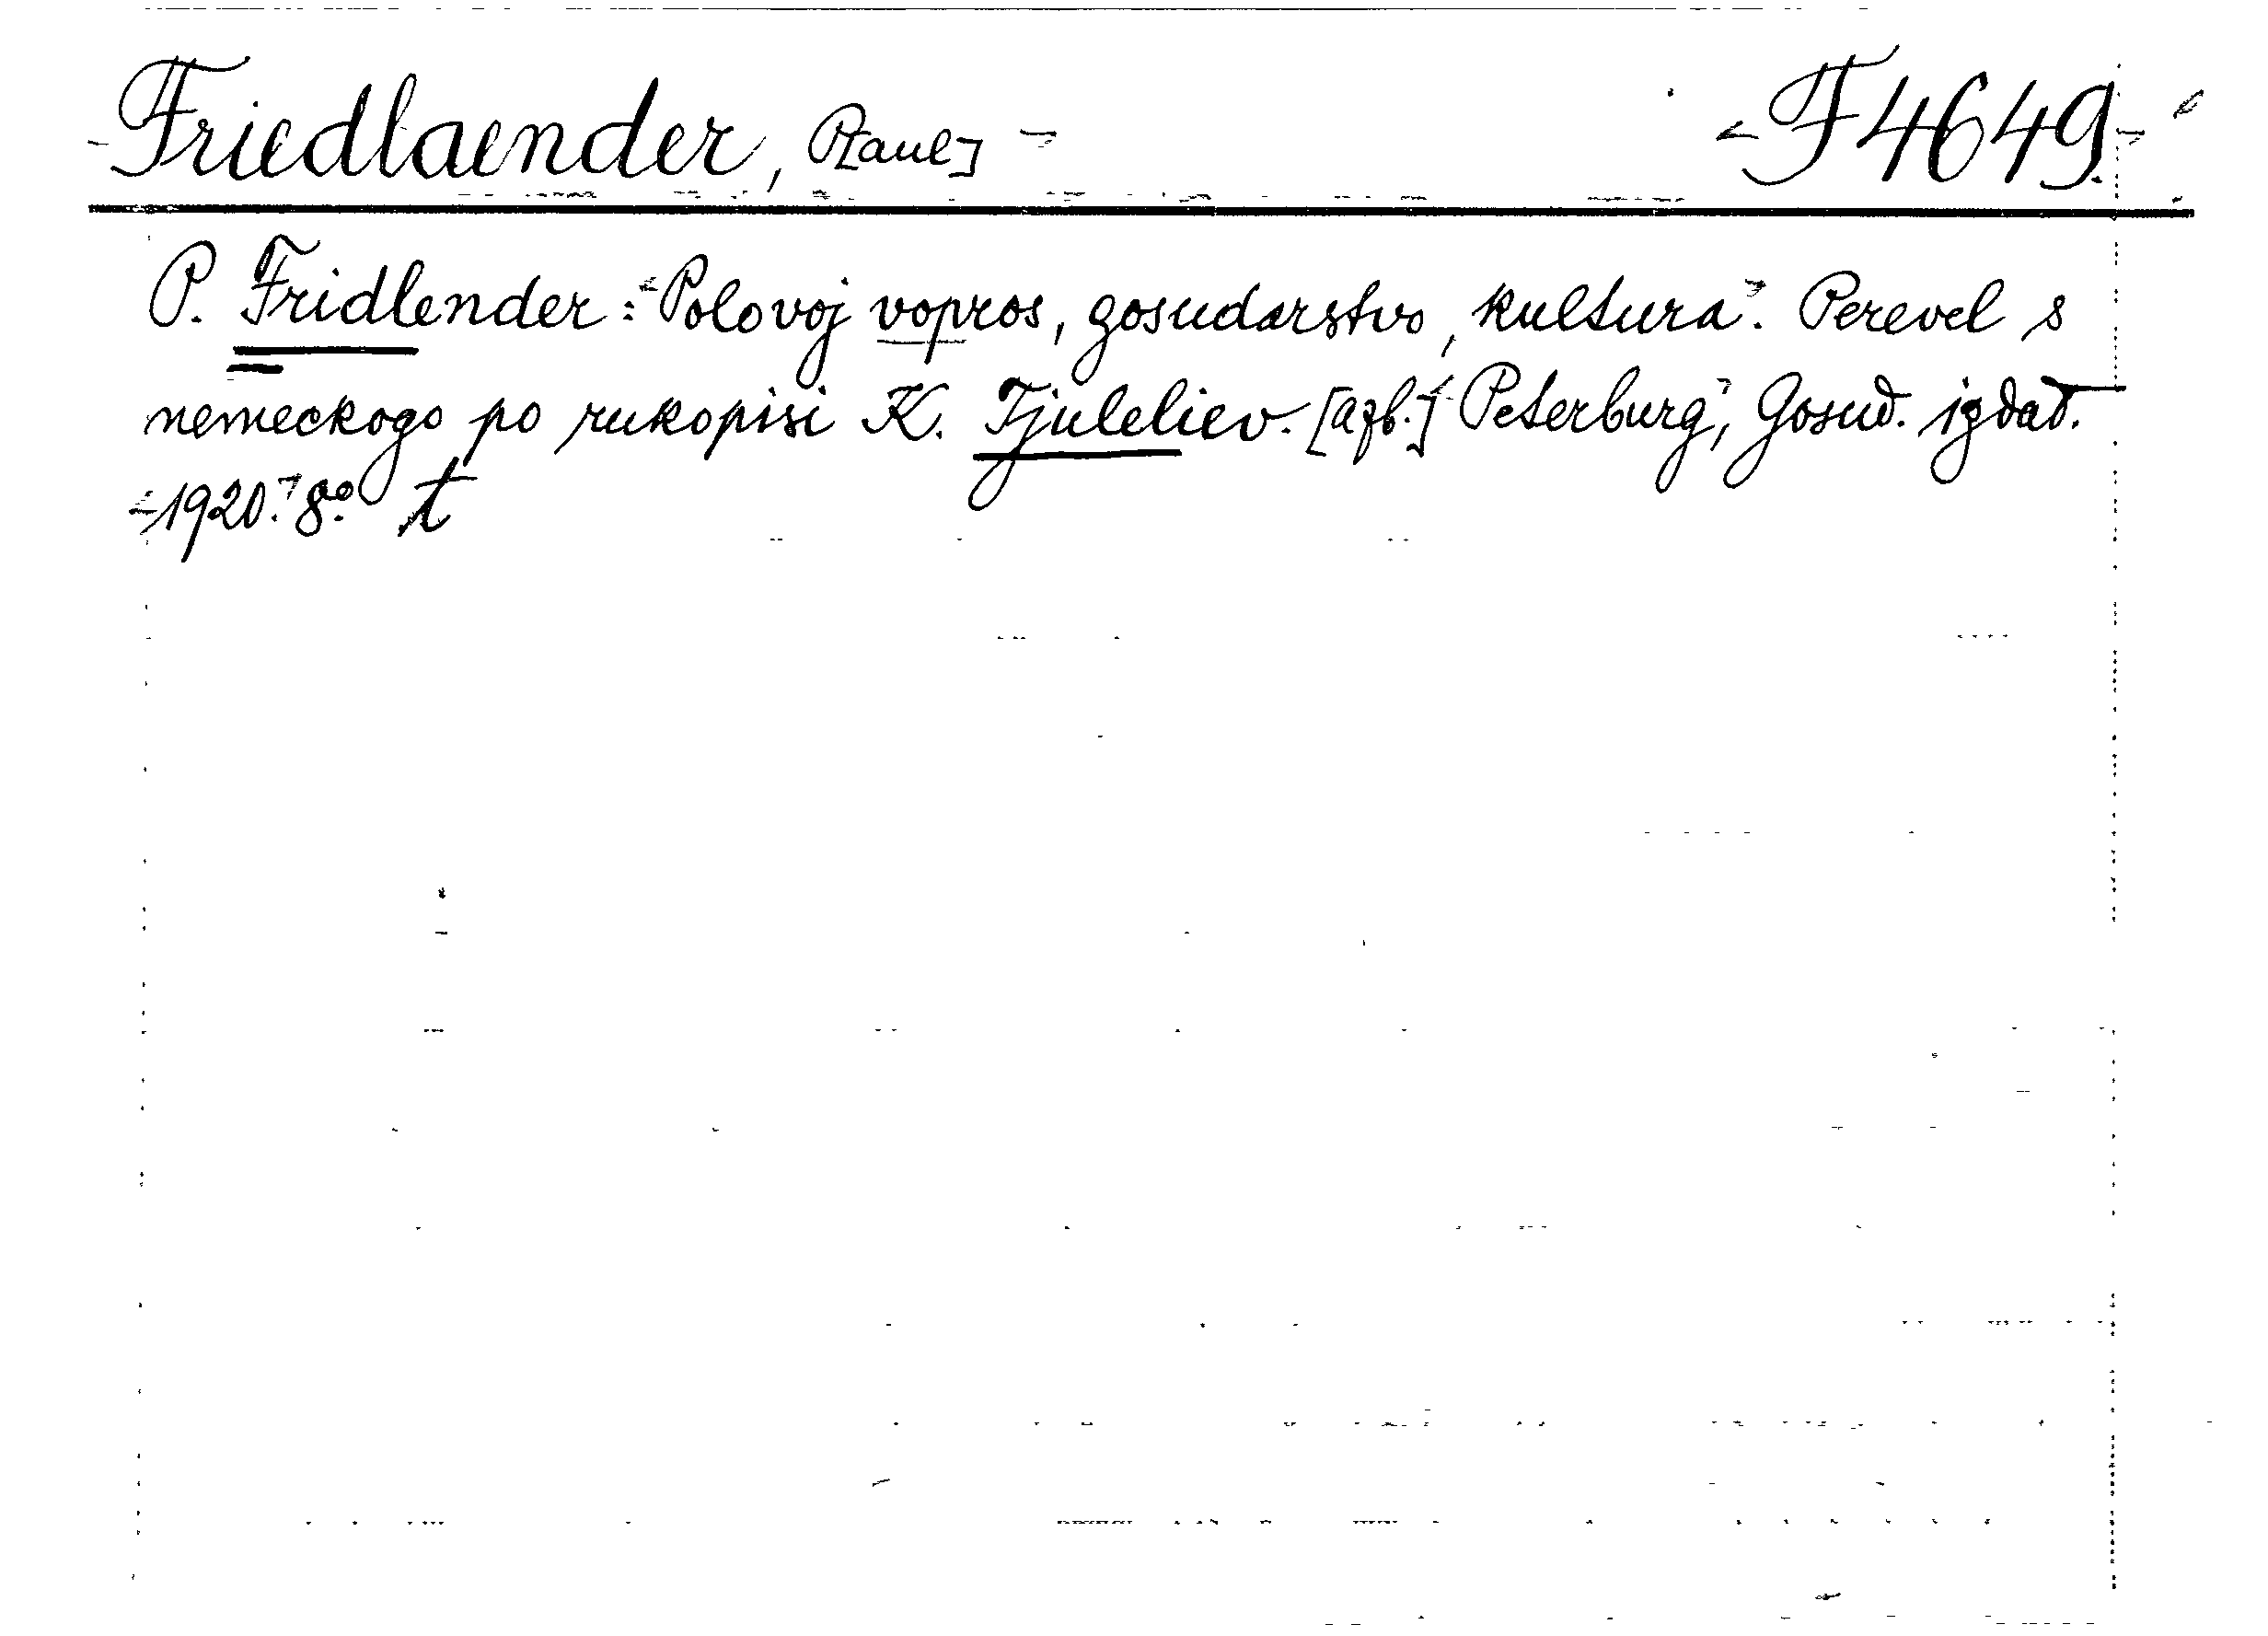 Friedlaender, P[aul] F 4649.
P. Fridlender: Polovoj vopros, gosudarstvo, kultura. Perevel s
nemeckogo po rukopisi K. Tjuleliev. [azb.] Peterburg, Gosud. izdat.
1920. 8º. t